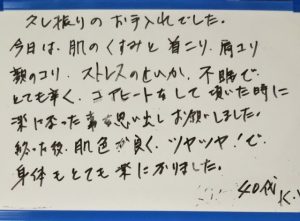 久し振りのお手入れでした。
今日は、肌のくすみと首こり、肩コリ
頭のコリ、ストレスのせいか、不眠で
とても辛く、コアヒートをして頂いた時に
楽になった事を思い出しお願いしました。
終った後、肌色が良く、ツヤツヤ!で
身体もとても楽になりました。
40代 K.